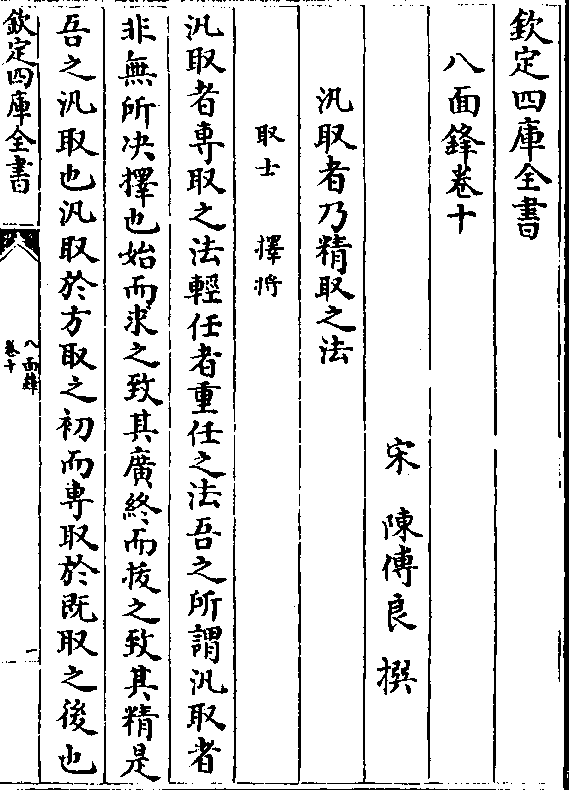 欽定四庫全書
八面鋒卷十
宋 陳傅良 撰
汎取者乃精取之法
取士 擇將
汎取者專取之法輕任者重任之法吾之所謂汎取者
非無所决擇也始而求之致其廣終而拔之致其精是
吾之汎取也汎取於方取之初而專取於既取之後也
欽定四庫全書
八面鋒
卷十
一